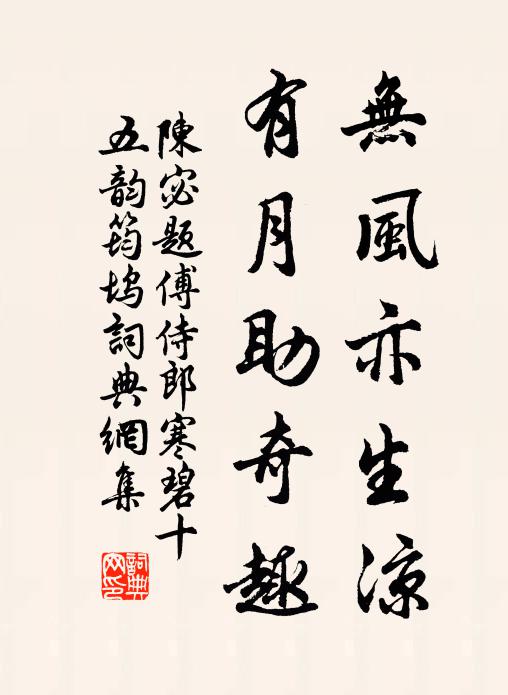 無風亦生涼
有月助奇趣
陳宓題傅侍郎寒碧十
五韵筠坞詞典網集
詞典
网印